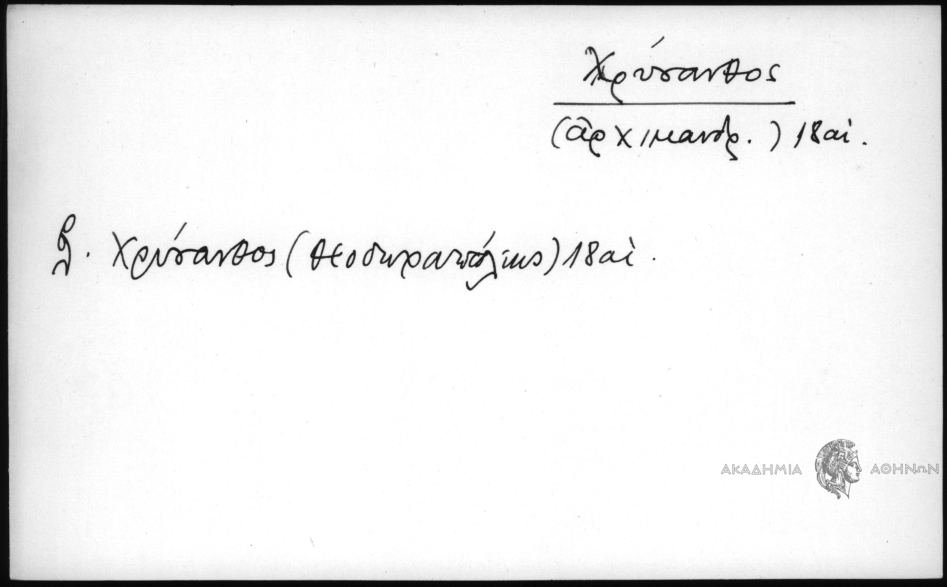 Χρύσανθος
(ἀρχιμανδρ.) 18 αἰ.
Χρύσανθος (Θεοδωραπόλεως) 18 αἰ.
ΑΚΑΔΗΜΙΑ ΑΘΗΝΩΝ